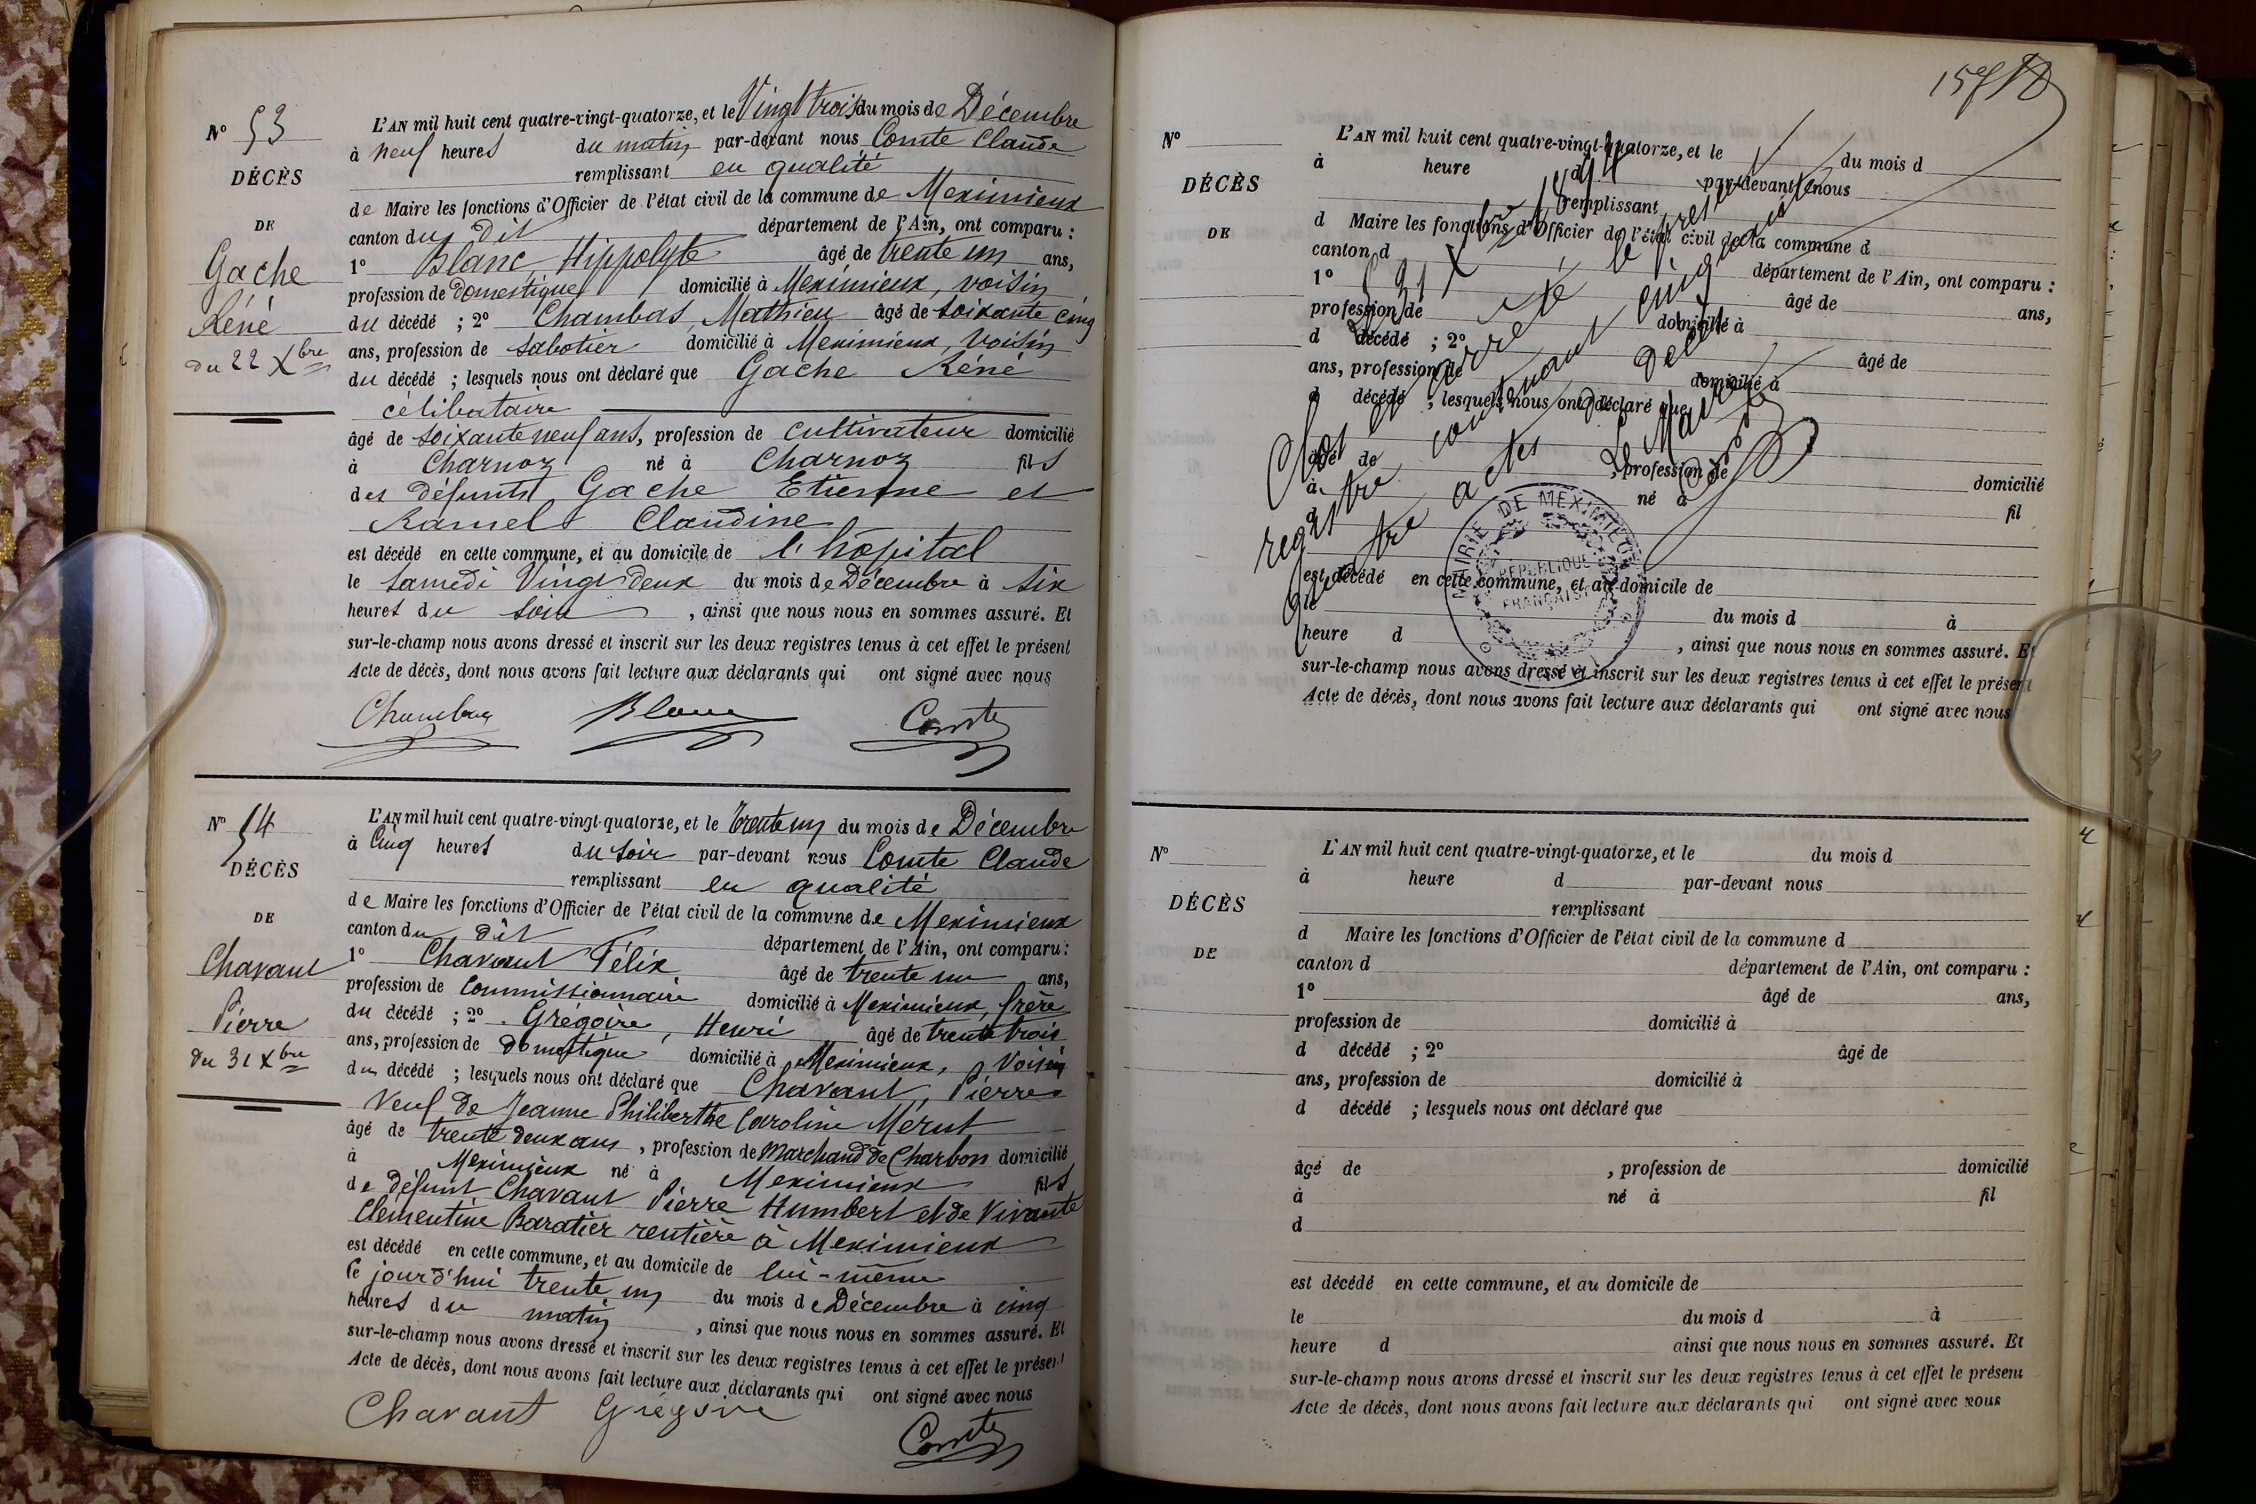 N° 53
DÉCÈS
DE
Gache
Réné
du 22 Xbre
L'AN mil huit cent quatre-vingt-quatorze, et le Vingt trois du mois de Décembre
à neuf heures du matin par-devant nous Comte Claude
remplissant en qualité
de Maire les fonctions d'Officier de l'état civil de la commune de Meximieux
canton du dit département de l'Ain, ont comparu :
1° Blanc Hippolyte âgé de trente un ans,
profession de domestique domicilié à Meximieux, voisin
du décédé ; 2° Chambas, Mathieu âgé de soixante cinq
ans, profession de sabotier domicilié à Meximieux, voisin
du décédé ; lesquels nous ont déclaré que Gache Réné
célibataire
âgé de soixante neuf ans, profession de cultivateur domicilié
à Charnoz né à Charnoz fils
des défunts Gache Etienne et
Ramel Claudine
est décédé en cette commune, et au domicile de l'hôpital
le samedi Vingt deux du mois de Décembre à six
heures du soir , ainsi que nous nous en sommes assuré. Et
sur-le-champ nous avons dressé et inscrit sur les deux registres tenus à cet effet le présent
Acte de décès, dont nous avons fait lecture aux déclarants qui ont signé avec nous
Chambas Blanc Comte
N° 54
DÉCÈS
DE
Chavant
Pierre
du 31 Xbre
L'AN mil huit cent quatre-vingt-quatorze, et le trente un du mois de Décembre
à Cinq heures du soir par-devant nous Comte Claude
remplissant en qualité
de Maire les fonctions d'Officier de l'état civil de la commune de Meximieux
canton du dit département de l'Ain, ont comparu :
1° Chavant Félix âgé de trente un ans,
profession de Commissionnaire domicilié à Meximieux, frère
du décédé ; 2° Grégoire, Henri âgé de trente trois
ans, profession de domestique domicilié à Meximieux, Voisin
du décédé ; lesquels nous ont déclaré que Chavant, Pierre
Veuf de Jeanne Philiberthe Caroline Merut
âgé de trente deux ans , profession de Marchand de Charbon domicilié
à Meximieux né à Meximieux fils
de défunt Chavant Pierre Humbert et de Vivante
Clementine Baratier rentière à Meximieux
est décédé en cette commune, et au domicile de lui-même
le jourd'hui trente un du mois de Décembre à cinq
heures du matin , ainsi que nous nous en sommes assuré. Et
sur-le-champ nous avons dressé et inscrit sur les deux registres tenus à cet effet le présent
Acte de décès, dont nous avons fait lecture aux déclarants qui ont signé avec nous
Chavant Grégoire
Comte
N°
DÉCÈS
DE
L'AN mil huit cent quatre-vingt-quatorze, et le du mois d
à heure d par-devant nous
remplissant
d Maire les fonctions d'Officier de l'état civil de la commune d
canton d département de l'Ain, ont comparu :
1° âgé de ans,
profession de domicilié à
d décédé ; 2° âgé de
ans, profession de domicilié à
d décédé ; lesquels nous ont déclaré que
âgé de , profession de domicilié
à né à fil
d
est décédé en cette commune, et au domicile de
le du mois d à
heure d , ainsi que nous nous en sommes assuré. Et
sur-le-champ nous avons dressé et inscrit sur les deux registres tenus à cet effet le présent
Acte de décès, dont nous avons fait lecture aux déclarants qui ont signé avec nous
Clos et arrêté le présent
registre contenant cinquante
quatre actes de Décès
31 Xbre 1894
Le Maire
Comte
MAIRIE DE MEXIMIEUX
RÉPUBLIQUE
FRANÇAISE
N°
DÉCÈS
DE
L'AN mil huit cent quatre-vingt-quatorze, et le du mois d
à heure d par-devant nous
remplissant
d Maire les fonctions d'Officier de l'état civil de la commune d
canton d département de l'Ain, ont comparu :
1° âgé de ans,
profession de domicilié à
d décédé ; 2° âgé de
ans, profession de domicilié à
d décédé ; lesquels nous ont déclaré que
âgé de , profession de domicilié
à né à fil
d
est décédé en cette commune, et au domicile de
le du mois d à
heure d ainsi que nous nous en sommes assuré. Et
sur-le-champ nous avons dressé et inscrit sur les deux registres tenus à cet effet le présent
Acte de décès, dont nous avons fait lecture aux déclarants qui ont signé avec nous